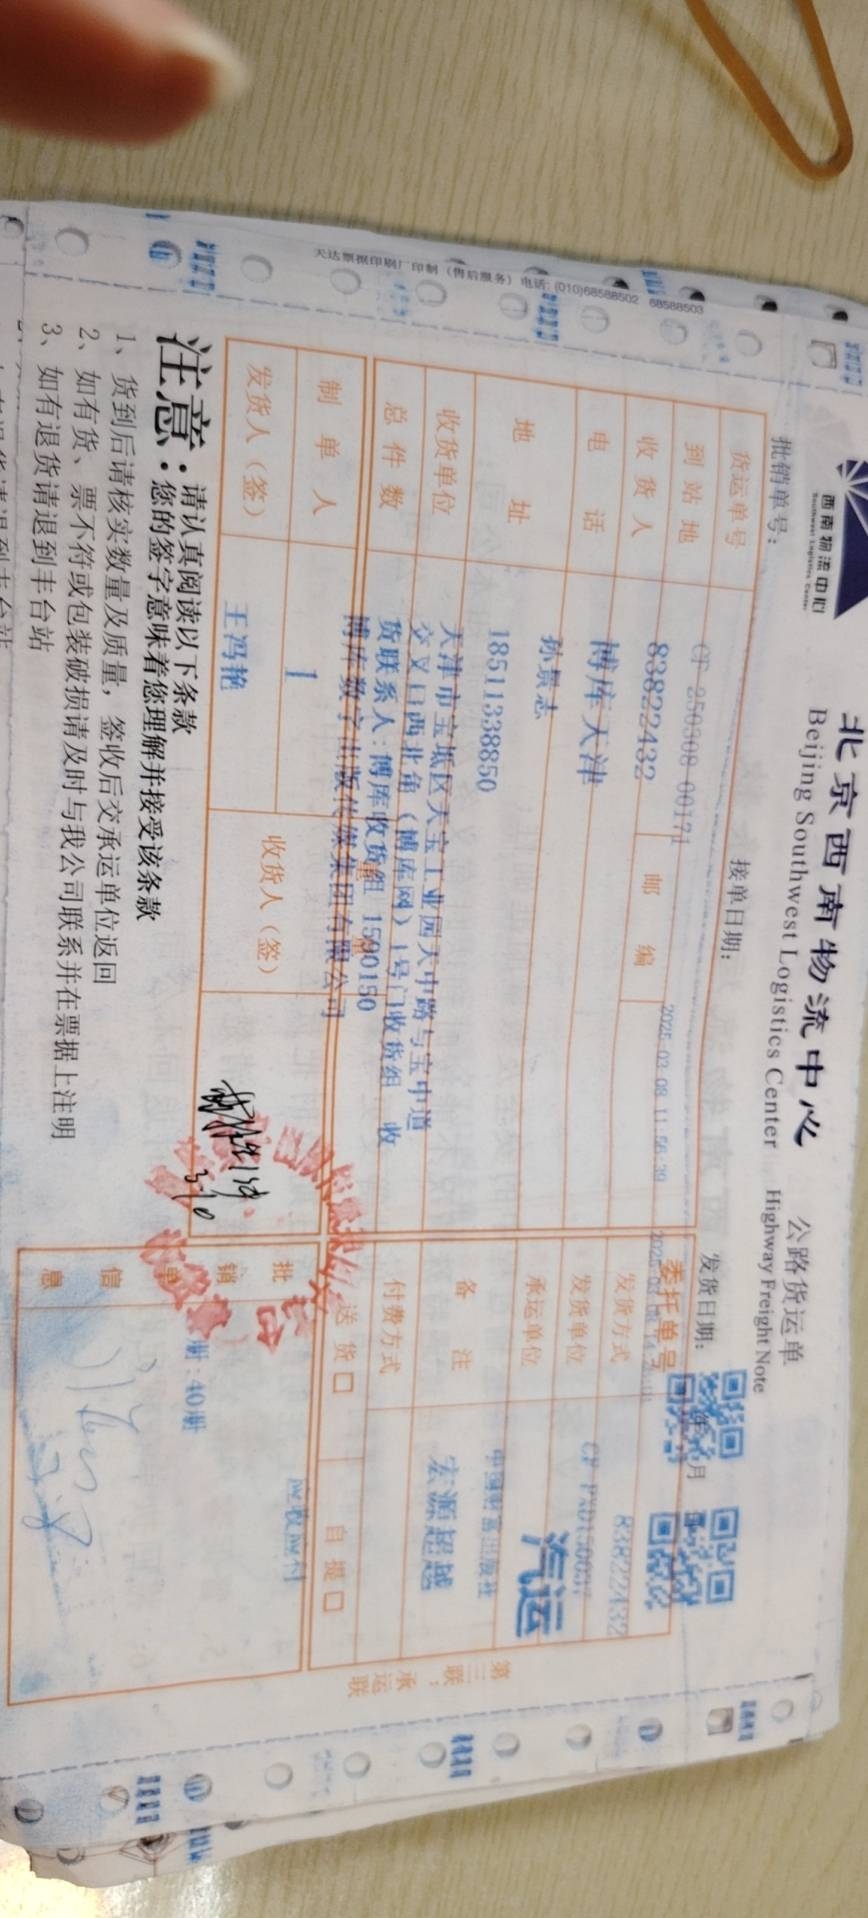 西南物流中心
Southwest Logistics Center
北京西南物流中心
公路货运单
Beijing Southwest Logistics Center
Highway Freight Note
批销单号：
接单日期：
发货日期：
年 月
货运单号
CF-250308-00171
2025-03-08 11:56:39
委托单号
到站地
83822432
邮编
发货方式
83822432
收货人
博库天津
发货单位
电话
孙景志
承运单位
汽运
中国财富出版社
地址
18511338850
备注
宏源超越
收货单位
天津市宝坻区天宝工业园天中路与宝中道
交叉口西北角（博库网）1号门收货组 收
付费方式
总件数
货联系人：博库收货组 1500150
博库数字出版传媒集团有限公司
送货 □
自提 □
制单人
1
收货人（签）
发货人（签）
王冯艳
3.10
批销单信息
册:40册
应收应付
注意：请认真阅读以下条款
您的签字意味着您理解并接受该条款
1、货到后请核实数量及质量，签收后交承运单位返回
2、如有货、票不符或包装破损请及时与我公司联系并在票据上注明
3、如有退货请退到丰台站
第三联：承运联
天达票据印刷厂印制（售后服务）电话: (010)68588502 68588503